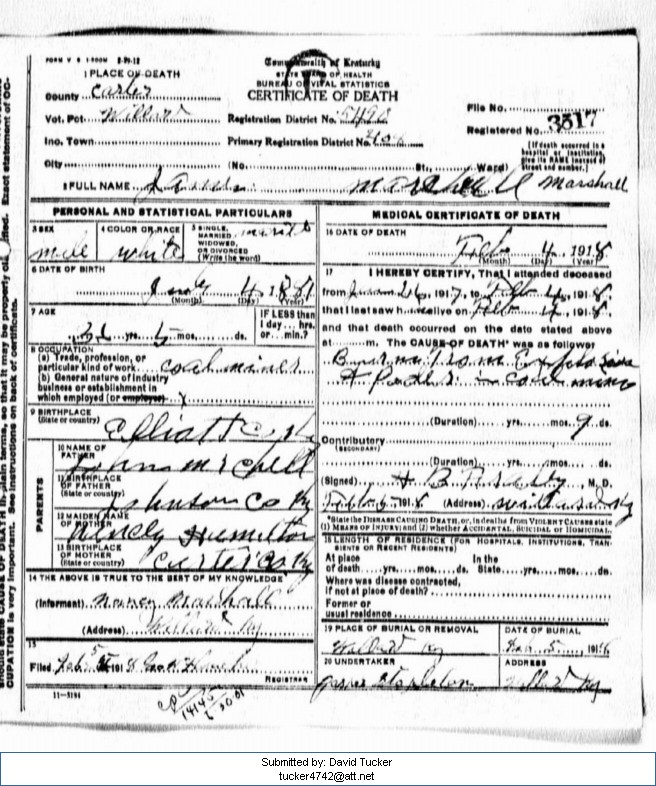 FORM V S 1-500M 2-29-12
Commonwealth of Kentucky
STATE BOARD OF HEALTH
BUREAU OF VITAL STATISTICS
CERTIFICATE OF DEATH
1 PLACE OF DEATH
County Carter
Vot. Pct Willard Registration District No.
Ino. Town Primary Registration District No.
City (No. St., Ward)
File No.
Registered No. 3517
[If death occurred in a
hospital or institution,
give its NAME instead of
street and number.]
2 FULL NAME Marshall Marshall
PERSONAL AND STATISTICAL PARTICULARS
3 SEX male
4 COLOR OR RACE white
5 SINGLE,
MARRIED,
WIDOWED,
OR DIVORCED
(Write the word)
6 DATE OF BIRTH
4 1881
(Month) (Day) (Year)
7 AGE
yrs. mos. ds.
IF LESS than
1 day... hrs.
or... min.?
8 OCCUPATION
(a) Trade, profession, or
particular kind of work coal miner
(b) General nature of industry
business or establishment in
which employed (or employer)
9 BIRTHPLACE
(State or country) Elliott Co Ky
PARENTS
10 NAME OF
FATHER
11 BIRTHPLACE
OF FATHER
(State or country) Johnson Co Ky
12 MAIDEN NAME
OF MOTHER Hamilton
13 BIRTHPLACE
OF MOTHER
(State or country) Carter Co Ky
14 THE ABOVE IS TRUE TO THE BEST OF MY KNOWLEDGE
(Informant) Marshall
(Address) Willard Ky
15
Filed Feb 5 1918
REGISTRAR
11-3191
MEDICAL CERTIFICATE OF DEATH
16 DATE OF DEATH
Feb 4, 1918
(Month) (Day) (Year)
17 I HEREBY CERTIFY, That I attended deceased
from Jan 26, 1917, to Feb 4, 1918,
that I last saw h alive on Feb 4, 1918,
and that death occurred on the date stated above
at m. The CAUSE OF DEATH* was as follower
Burns from Explosion
of powder in coal mine
(Duration) yrs. mos. 9 ds.
Contributory
(SECONDARY)
(Duration) yrs. mos. ds.
(Signed) M. D.
1918 (Address) Willard Ky
*State the DISEASE CAUSING DEATH, or, in deaths from VIOLENT CAUSES state
(1) MEANS OF INJURY; and (2) whether ACCIDENTAL, SUICIDAL or HOMICIDAL.
18 LENGTH OF RESIDENCE (FOR HOSPITALS, INSTITUTIONS, TRAN-
SIENTS OR RECENT RESIDENTS)
At place In the
of death yrs. mos. ds. State yrs. mos. ds.
Where was disease contracted,
if not at place of death?
Former or
usual residence
19 PLACE OF BURIAL OR REMOVAL
Willard Ky
DATE OF BURIAL
5, 191
20 UNDERTAKER
Stapleton
ADDRESS
Willard Ky
Submitted by: David Tucker
tucker4742@att.net